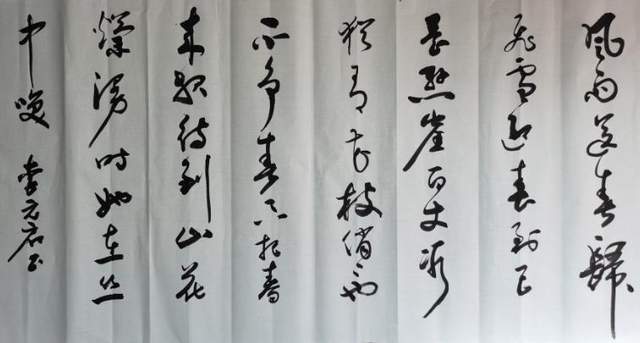 风雨送春歸
飞雪迎春到已
是悬崖百丈冰
犹有花枝俏〻也
不争春只把春
来报待到山花
爛漫时她在丛
中笑 李元